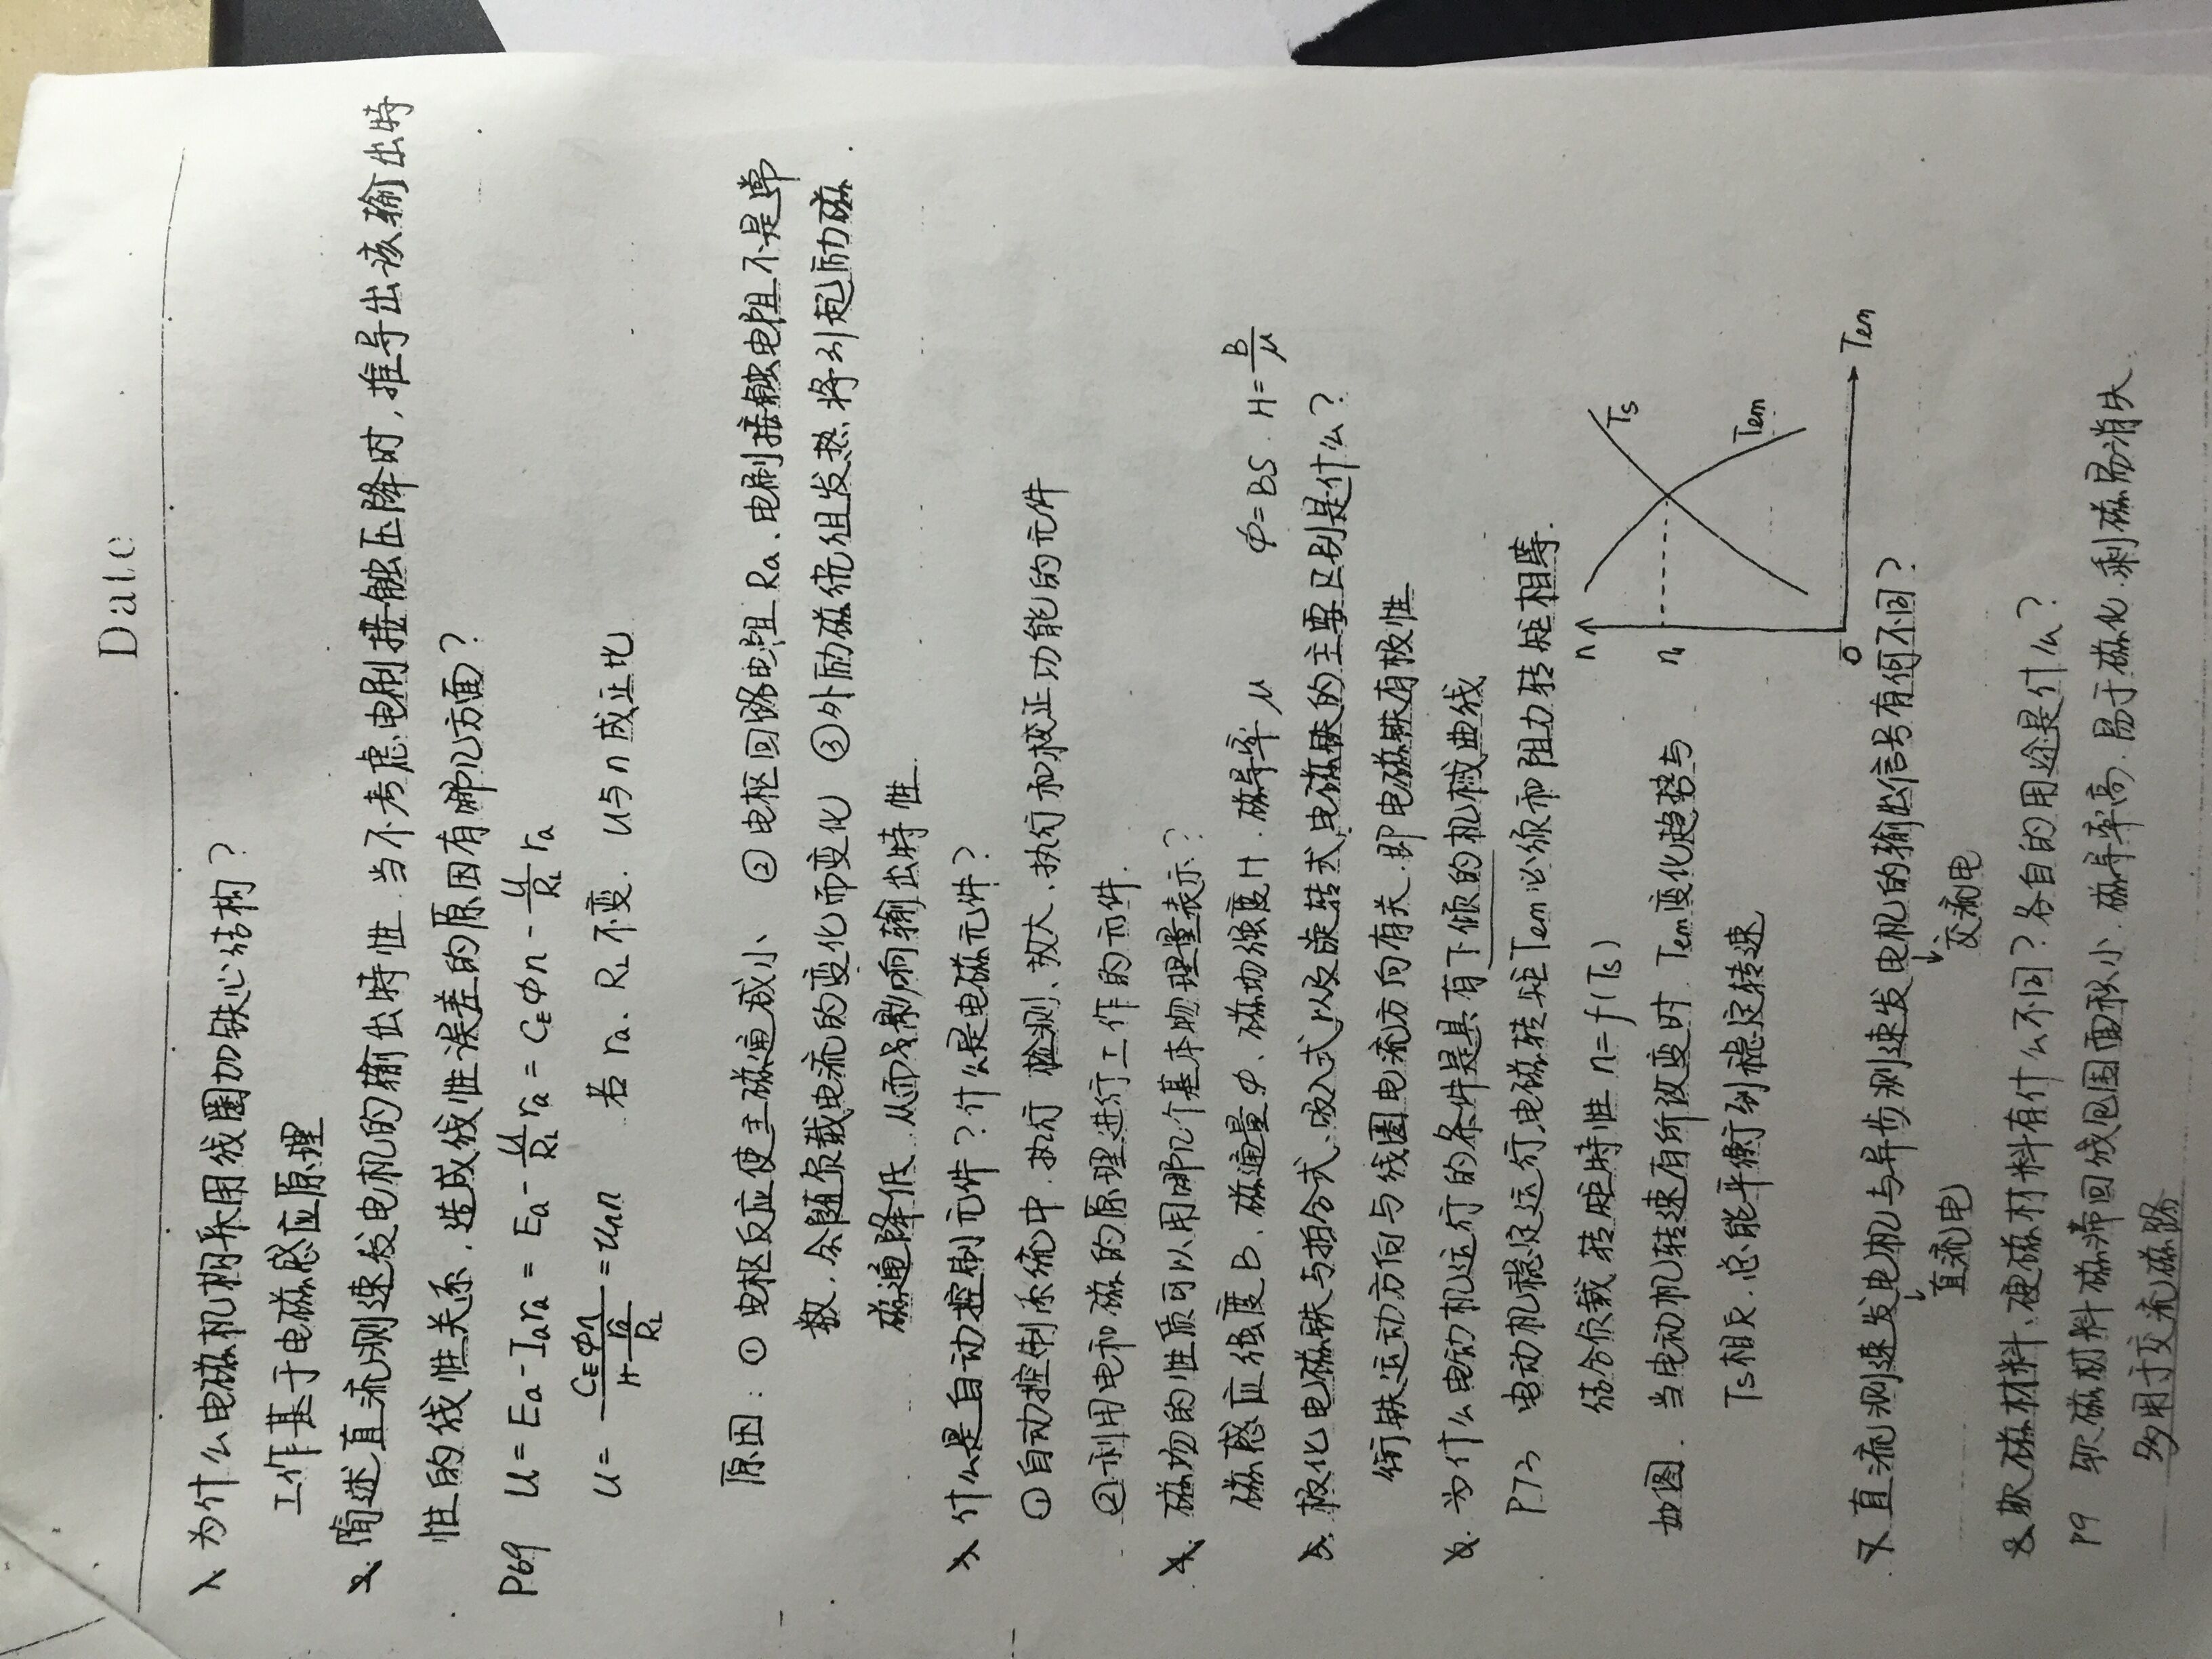 Date
1. 为什么电磁机构采用线圈加铁心结构?
工作基于电磁感应原理
2. 简述直流测速发电机的输出特性.当不考虑电刷接触压降时,推导出该输出特
性的线性关系.造成线性误差的原因有哪几方面?
P69 U = Ea - Iara = Ea - U/RL ra = CEΦn - U/RL ra
U = CEΦn/(1+ra/RL) = Unn 若 ra、RL不变. U与n成正比
原因: ① 电枢反应使主磁通减小 ② 电枢回路电阻 Ra、电刷接触电阻不是常
数.会随负载电流的变化而变化 ③外励磁绕组发热将引起励磁
磁通降低.从而影响输出特性.
3. 什么是自动控制元件?什么是电磁元件?
①自动控制系统中.执行 检测、放大、执行和校正功能的元件
②利用电和磁的原理进行工作的元件.
4. 磁场的性质可以用哪几个基本物理量表示?
磁感应强度B、磁通量Φ、磁场强度H.磁导率μ Φ=BS. H=B/μ
5. 极化电磁铁与拍合式、吸入式以及旋转式电磁铁的主要区别是什么?
衔铁运动方向与线圈电流方向有关.即电磁铁有极性
6. 为什么电动机运行的条件是具有下倾的机械曲线
P73 电动机稳定运行,电磁转矩Tem必须和阻力转矩相等.
结合负载转矩特性 n=f(Ts)
n
Ts
如图. 当电动机转速有所改变时 Tem变化趋势与
n1
Ts相反.总能平衡到稳定转速
Tem
0 Tem
7. 直流测速发电机与异步测速发电机的输出信号有何不同?
↓ ↓
直流电 交流电
8. 软磁材料、硬磁材料有什么不同?各自的用途是什么?
P9 软磁材料磁滞回线包围面积小.磁导率高.易于磁化.剩磁易消失.
多用于交流磁路